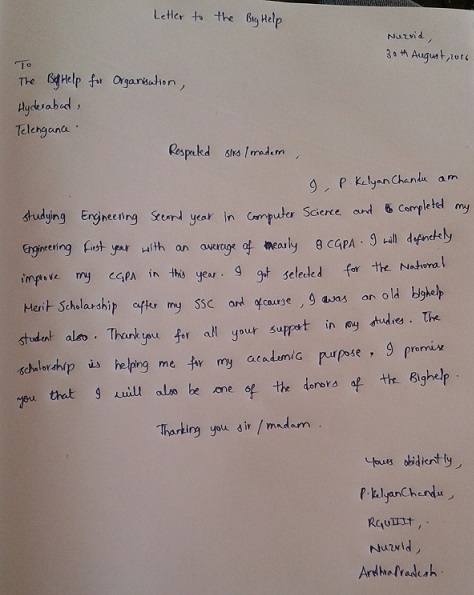 Letter to the BigHelp
Nuzvid,
30th August, 2016
To
The BigHelp for Organisation,
Hyderabad,
Telengana.
Respected sirs/madam,
I, P. KalyanChandu am
studying Engineering Second year in Computer Science and completed my
Engineering First year with an average of nearly 8 CGPA. I will definetely
improve my CGPA in this year. I got selected for the National
Merit Scholarship after my SSC and ofcourse, I was an old bighelp
student also. Thankyou for all your support in my studies. The
scholorship is helping me for my academic purpose, I promise
you that I will also be one of the donors of the Bighelp.
Thanking you sir/madam.
Yours obidiently,
P. KalyanChandu,
RGUIIIT,
Nuzvid,
AndhraPradesh.